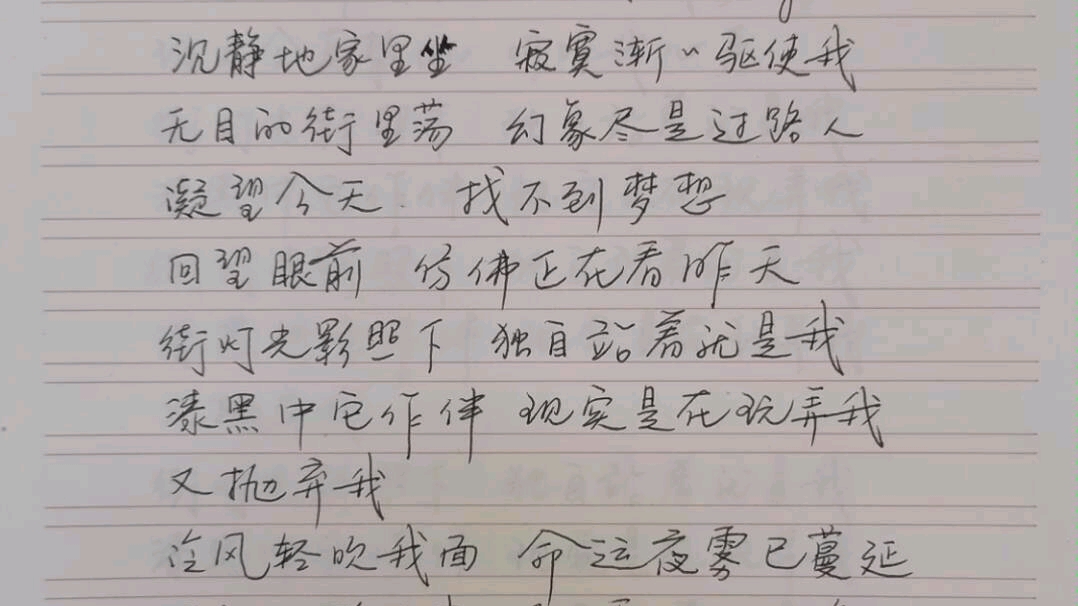 沉静地家里坐 寂寞渐〃驱使我
无目的街里荡 幻象尽是过路人
凝望今天 找不到梦想
回望眼前 仿佛正在看昨天
街灯光影照下 独自站着就是我
漆黑中它作伴 现实是在玩弄我
又抛弃我
冷风轻吹我面 命运夜雾已蔓延